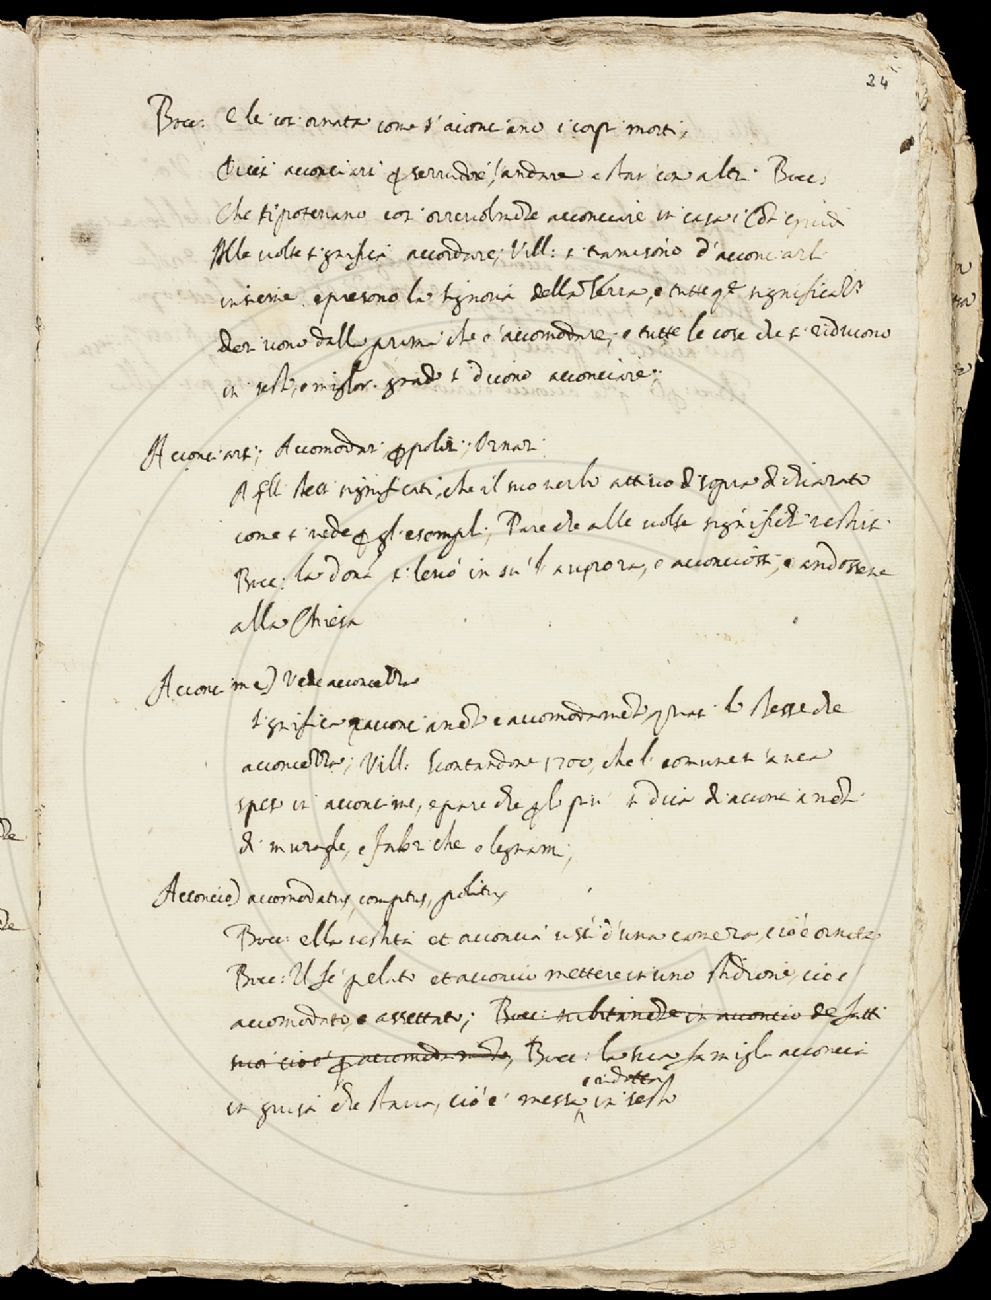 24
Bocc: E le così ornata come s'aconciano i corpi morti,
Dicesi acconciarsi p servidore, andare a star con altri Bocc:
Che si poteriano così orrevolmte acconciare in casa
Alle volte significa accordare; Vill: si tramisono d'acconciarli
insieme e presono la signoria della Terra, e tutte qte significati
derivono dalla prima che è accomodare; e tutte le cose che si riducono
in sesto, o miglior grado si dicono acconciare;
Acconciarsi; Accomodar, polir; Ornar
A qlli stessi significati, che il suo verbo attivo di sopra dichiarato
come si vede p gl'esempli; Pare che alle volte significhi vestirsi
Bocc: la dona si levò in su'l aurora, e acconciossi, e andossene
alla Chiesa
Acconcime) Vedi acconcezza
significa acconciamto e accomodamto, quasi lo stesso che
acconcezza; Vill: scontandone 1700, che'l comune si avea
speso in acconcime, e pare che p lo più si dica di acconciamti
di muraglie, e fabriche e legnami;
Acconcio) accomodatus, comptus, politus
Bocc: ella vestita et acconcia uscì d'una camera, cioè ornata
Bocc: Use pelato et acconcio mettere in uno, cioè
accomodato, e assettato; Bocc: subitamte in acconcio de fatti
suoi cioè p accomodamto, Bocc: la sua famiglia acconcia
e ridotta
in guisa che stava, cioè messa in sesto